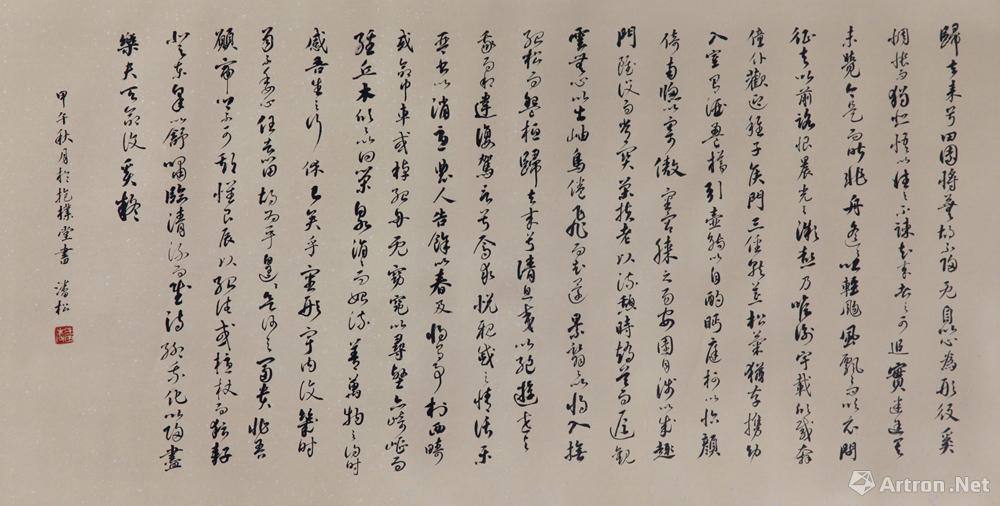 歸去来兮田園將蕪胡不歸既自以心為形役奚
惆悵而獨悲悟以往之不諫知来者之可追實迷途其
未覺今是而昨非舟遙遙以輕颺風飄飄而吹衣問
征夫以前路恨晨光之微熹乃瞻衡宇載欣載奔
僮仆歡迎稚子候門三徑就荒松菊猶存攜幼
入室有酒盈樽引壺觴以自酌眄庭柯以怡顏
倚南窗以寄傲審容膝之易安園日涉以成趣
門雖設而常關策扶老以流憩時矯首而遐觀
雲無心以出岫鳥倦飛而知還景翳翳以將入撫
孤松而盤桓歸去来兮請息交以絕遊世與
我而相違復駕言兮焉求悅親戚之情話樂
琴書以消憂農人告餘以春及將有事於西疇
或命巾車或棹孤舟既窈窕以尋壑亦崎嶇而
經丘木欣欣以向榮泉涓涓而始流善萬物之得時
感吾生之行休已矣乎寓形宇內復幾時
曷不委心任去留胡為乎遑遑欲何之富貴非吾
願帝鄉不可期懷良辰以孤往或植杖而耘耔
登東皋以舒嘯臨清流而賦詩聊乘化以歸盡
樂夫天命復奚疑
甲午秋月於抱樸堂書 潘松
Artron.Net